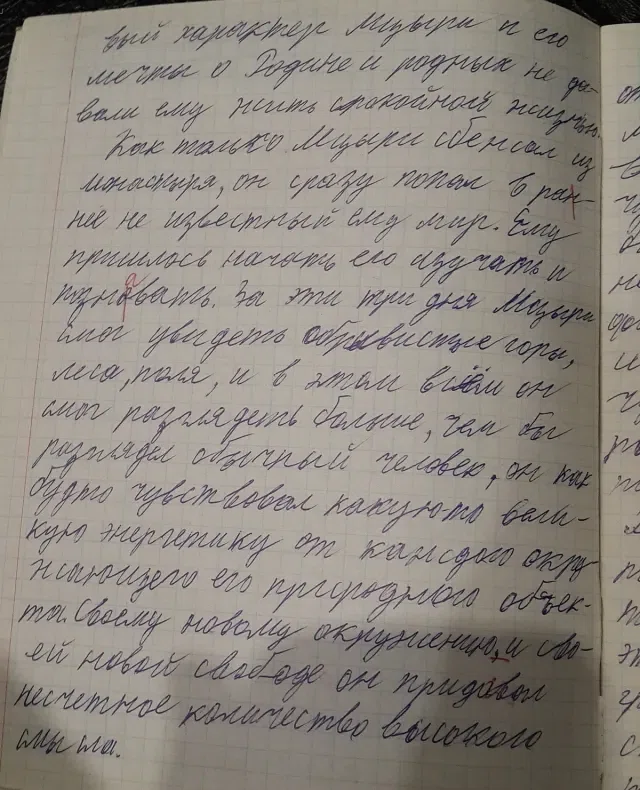 вый характер Мцыри и его
мечты о Родине и родных не да-
вали ему жить спокойной жизнью.
Как только Мцыри сбежал из
монастыря, он сразу попал в ран-
нее не известный ему мир. Ему
пришлось начать его изучать и
познавать. За эти три дня Мцыри
смог увидеть обрывистые горы,
леса, поля, и в этом всём он
смог разглядеть больше, чем бы
разглядел обычный человек, он как
будто чувствовал какую-то вели-
кую энергетику от каждого окру-
жающего его природного объек-
та. Своему новому окружению, и сво-
ей новой свободе он придавал
несчетное количество высокого
смысла.